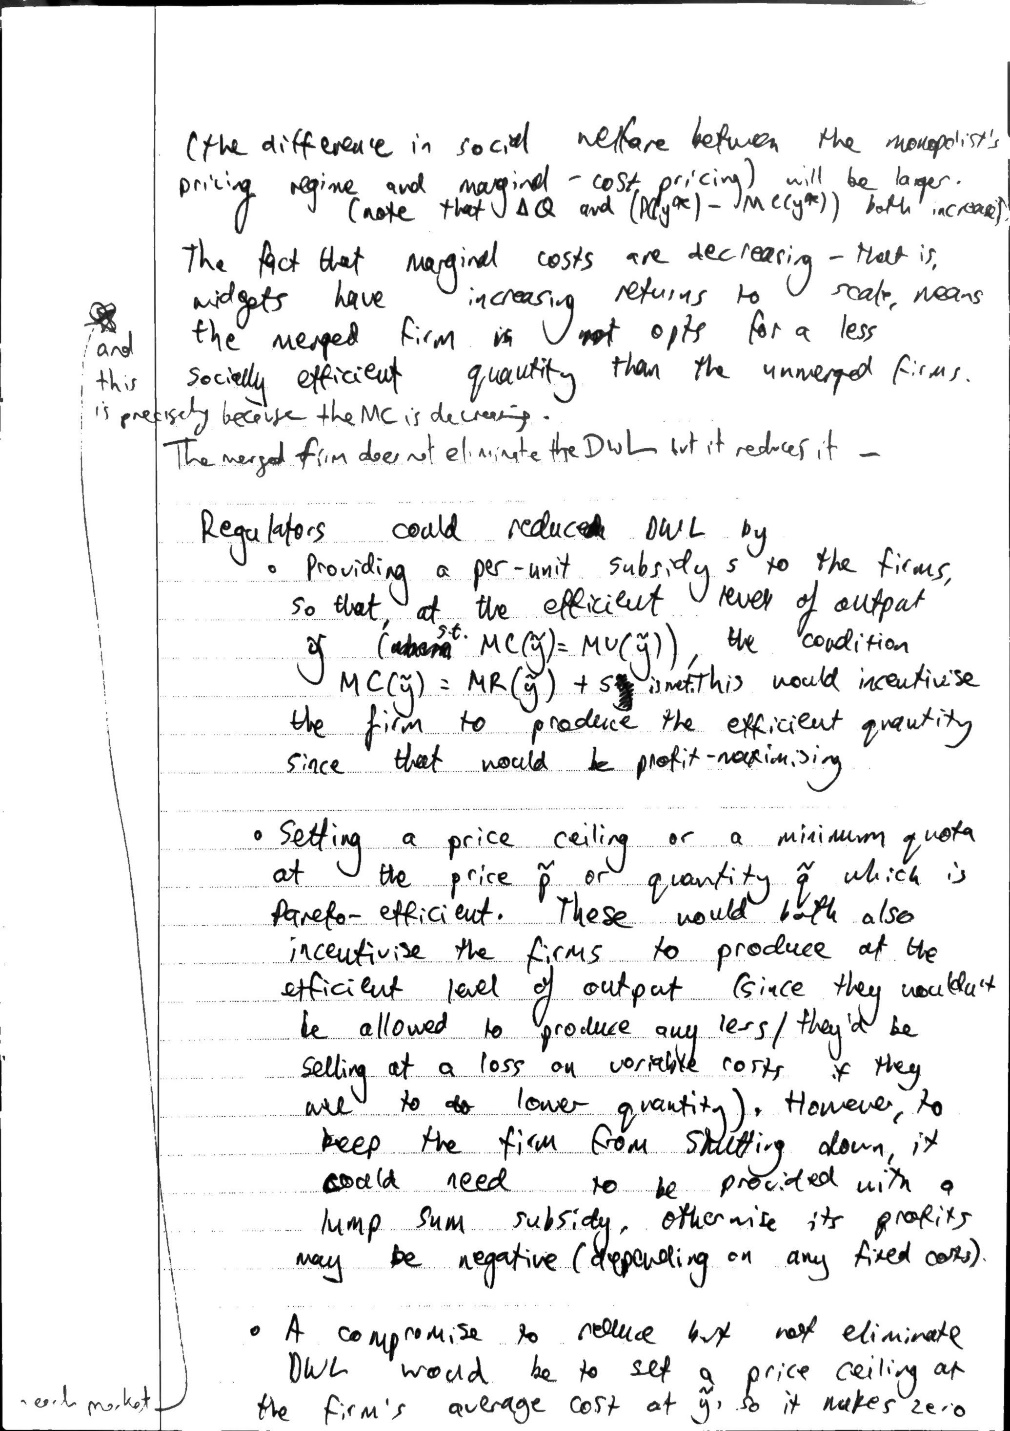 (the difference in social welfare between the monopolist's
pricing regime and marginal-cost pricing) will be larger.
(note that ΔQ and (P(y*) - MC(y*)) both increase)
The fact that marginal costs are decreasing - that is,
widgets have increasing returns to scale, means
the merged firm opts for a less
socially efficient quantity than the unmerged firms.
and
this
is precisely because the MC is decreasing.
The merged firm does not eliminate the DWL but it reduces it -
Regulators could reduce DWL by
• Providing a per-unit subsidy s to the firms,
so that, at the efficient level of output
ỹ (s.t. MC(ỹ) = MU(ỹ)), the condition
MC(ỹ) = MR(ỹ) + s is met. This would incentivise
the firm to produce the efficient quantity
since that would be profit-maximising
• Setting a price ceiling or a minimum quota
at the price p̃ or quantity q̃ which is
Pareto-efficient. These would both also
incentivise the firms to produce at the
efficient level of output (since they wouldn't
be allowed to produce any less/they'd be
selling at a loss on variable costs if they
to lower quantity). However, to
keep the firm from shutting down, it
could need to be provided with a
lump sum subsidy, otherwise its profits
may be negative (depending on any fixed costs).
• A compromise to reduce but not eliminate
DWL would be to set a price ceiling at
the firm's average cost at ỹ, so it makes zero
market